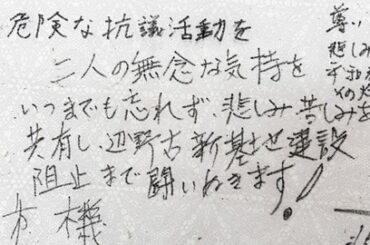 危険な抗議活動を
二人の無念な気持を
いつまでも忘れず、悲しみ苦しみを
共有し、辺野古新基地建設
阻止まで闘いぬきます!
機
尊い
悲しみ
平和